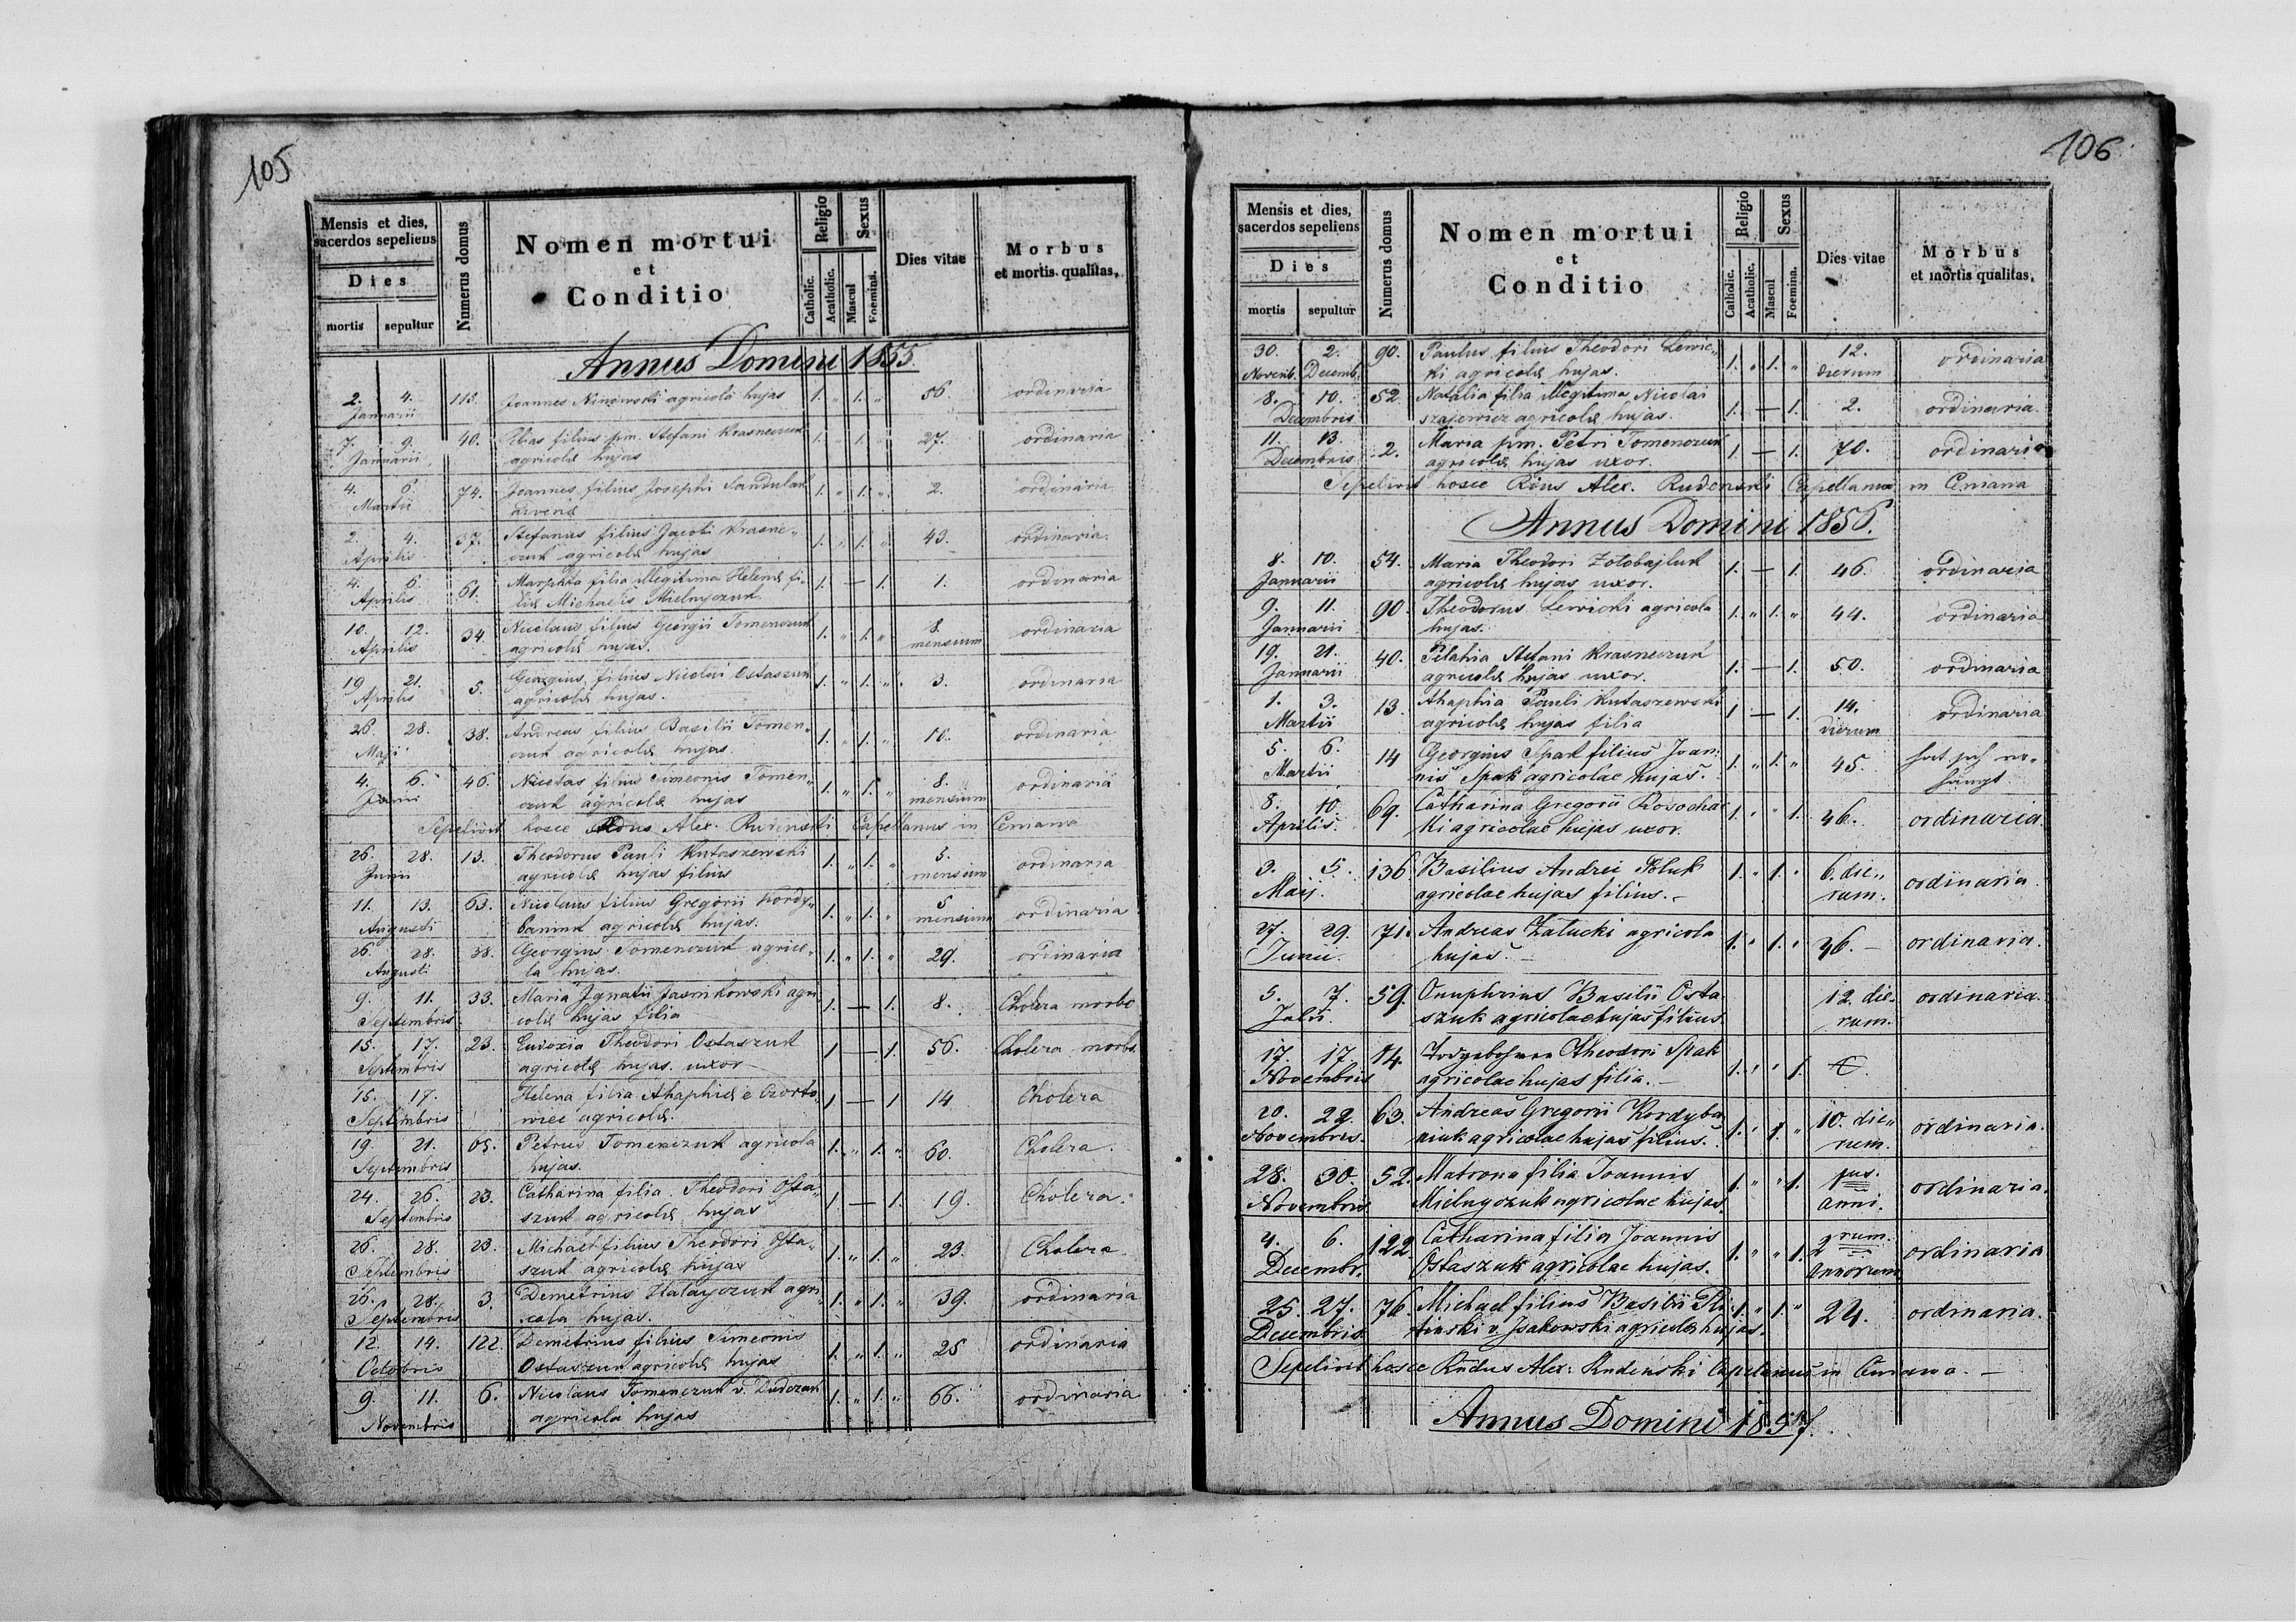 105
Mensis et dies,
sacerdos sepeliens
Dies
mortis sepultur
Numerus domus
Nomen mortui
et
Conditio
Religio
Catholic.
Acatholic.
Sexus
Mascul
Foemina.
Dies vitae
Morbus
et mortis qualitas.
Annus Domini 1855.
2. 4. 115. Joannes Ninowski agricola hujas 1. " 1. " 56. ordinaria
Januarii
7. 9. 40. Elias filius pm. Stefani Krasneczuk 1. " 1. " 27. ordinaria
Januarii agricolæ hujas
4. 6. 74. Joannes filius Josephi Sandulak 1. " 1. " 2. ordinaria
Martii
2. 4. 37. Stefanus filius Jacobi Krasne„ 1. " 1. " 43. ordinaria.
Aprilis czuk agricolæ hujas
4. 6. 61. Marphta filia illegitima Helenæ fi- 1. — 1. 1. ordinaria
Aprilis liæ Michaelis Mielnyczuk
10. 12. 34. Nicolaus filius Georgii Tomenczuk 1. " 1. " 8. ordinaria
Aprilis agricolæ hujas. mensium
19 21. 5. Georgius filius Nicolai Ostaszuk 1. " 1. " 3. ordinaria
Aprilis agricolæ hujas.
26. 28. 38. Andreas filius Basilii Tomen„ 1. " 1. " 10. ordinaria
Maji czuk agricolæ hujas.
4. 6. 46. Nicetas filius Simeonis Tomen„ 1. " 1. " 8. ordinaria
Junii czuk agricolæ hujas mensium
Sepelivit hosce Alex. Rudenski Capellanus in Ceniawa
26. 28. 13. Theodorus Pauli Kutaszewski 1. " 1. " 5. ordinaria
Junii agricolæ hujas filius mensium
11. 13. 63. Nicolaus filius Gregorii Kordy„ 1. " 1. " 5 ordinaria
Augusti baniuk agricolæ hujas. mensium
26. 28. 38. Georgius Tomenczuk agrico„ 1. " 1. " 29. ordinaria
Augusti la hujas.
9. 11. 33. Maria Ignatii Jasnikowski agri 1. — 1. 8. Cholera morbo
Septembris colæ hujas filia
15. 17. 23. Eudoxia Theodori Ostaszuk 1 — 1. 56. Cholera morbo
Septembris agricolæ hujas. uxor
15. 17. Helena filia Ahaphiæ e Czorto„ 1 — 1 14 Cholera
Septembris wiec agricolæ.
19. 21. 05. Petrus Tomenczuk agricola 1. " 1. " 60. Cholera.
Septembris hujas.
24. 26. 23. Catharina filia Theodori Osta„ 1 — 1. 19. Cholera.
Septembris szuk agricolæ hujas
26. 28. 23. Michael filius Theodori Osta„ 1. " 1. " 23. Cholera
Septembris szuk agricolæ hujas
26. 28. 3. Demetrius Halayczuk agri 1. " 1. " 39. ordinaria
Septembris cola hujas.
12. 14. 122. Demetrius filius Simeonis 1. " 1. " 25 ordinaria
Octobris Ostaszuk agricolæ hujas
9. 11. 6. Nicolaus Tomenczuk v. Dudczak 1. " 1. " 66. ordinaria
Novembris agricola hujas
106
Mensis et dies,
sacerdos sepeliens
Dies
mortis sepultur
Numerus domus
Nomen mortui
et
Conditio
Religio
Catholic.
Acatholic.
Sexus
Mascul
Foemina.
Dies vitae
Morbus
et mortis qualitas.
30. 2. 90. Paulus filius Theodori Lewic„ 1. " 1. " 12. ordinaria
Novemb. Decemb. ki agricolæ hujas. dierum
8. 10. 52 Natalia filia illegitima Nicolai 1. — 1. 2. ordinaria.
Decembris szajewicz agricolæ hujas.
11. 13. 2. Maria pm. Petri Tomenczuk 1. — 1. 70. ordinaria
Decembris agricolæ hujas uxor.
Sepelivit hosce Rdus Alex. Rudenski Capellanus in Ceniawa
Annus Domini 1856.
8. 10. 54. Maria Theodori Zolobajluk 1. — 1. 46. ordinaria
Januarii agricolæ hujas uxor.
9. 11. 90. Theodorus Lewicki agricola 1. " 1. " 44. ordinaria
Januarii hujas.
19. 21. 40. Pelahia Stefani Krasneczuk 1. — 1. 50. ordinaria
Januarii agricolæ hujas uxor.
1. 3. 13. Ahaphia Pauli Kutaszewski 1. — 1. 14. ordinaria
Martii agricolæ hujas filia dierum
5. 6. 14 Georgius Spak filius Joan- 1. " 1. " 45.
Martii nis Spak agricolae hujas.
8. 10. 69. Catharina Gregorii Rosochac 1. " " 1. 46. ordinaria.
Aprilis. ki agricolae hujas uxor.
3. 5. 136. Basilius Andrei Soluk 1. " 1. " 6. die„ ordinaria.
Maij. agricolae hujas filius. rum.
27. 29. 71. Andreas Załucki agricola 1. " 1. " 46. ordinaria.
Junii. hujas.
5. 7. 59. Onuphrius Basilii Osta 12. die- ordinaria.
Julii. szuk agricolae hujas filius. rum.
17. 17. 14. Theodori Spak 1. " " 1.
Novembris agricolae hujas filia.
20. 22. 63. Andreas Gregorii Kordyba 1. " 1. " 10. die„ ordinaria.
Novembris. niuk agricolae hujas filius. rum.
28. 30. 52. Matrona filia Joannis 1. " " 1. ordinaria.
Novembris. Mielnyczuk agricolae hujas. anni.
4. 6. 122. Catharina filia Joannis 1. " " 1. 2 ordinaria
Decembr. Ostaszuk agricolae hujas. annorum
25. 27. 76. Michael filius Basilii 1. " 1. " 24. ordinaria.
Decembris. v. Isakowski agricolæ hujas.
Sepelivit hosce Rndus Alex. Rudenski Capelanus in Ceniawa.
Annus Domini 1857.